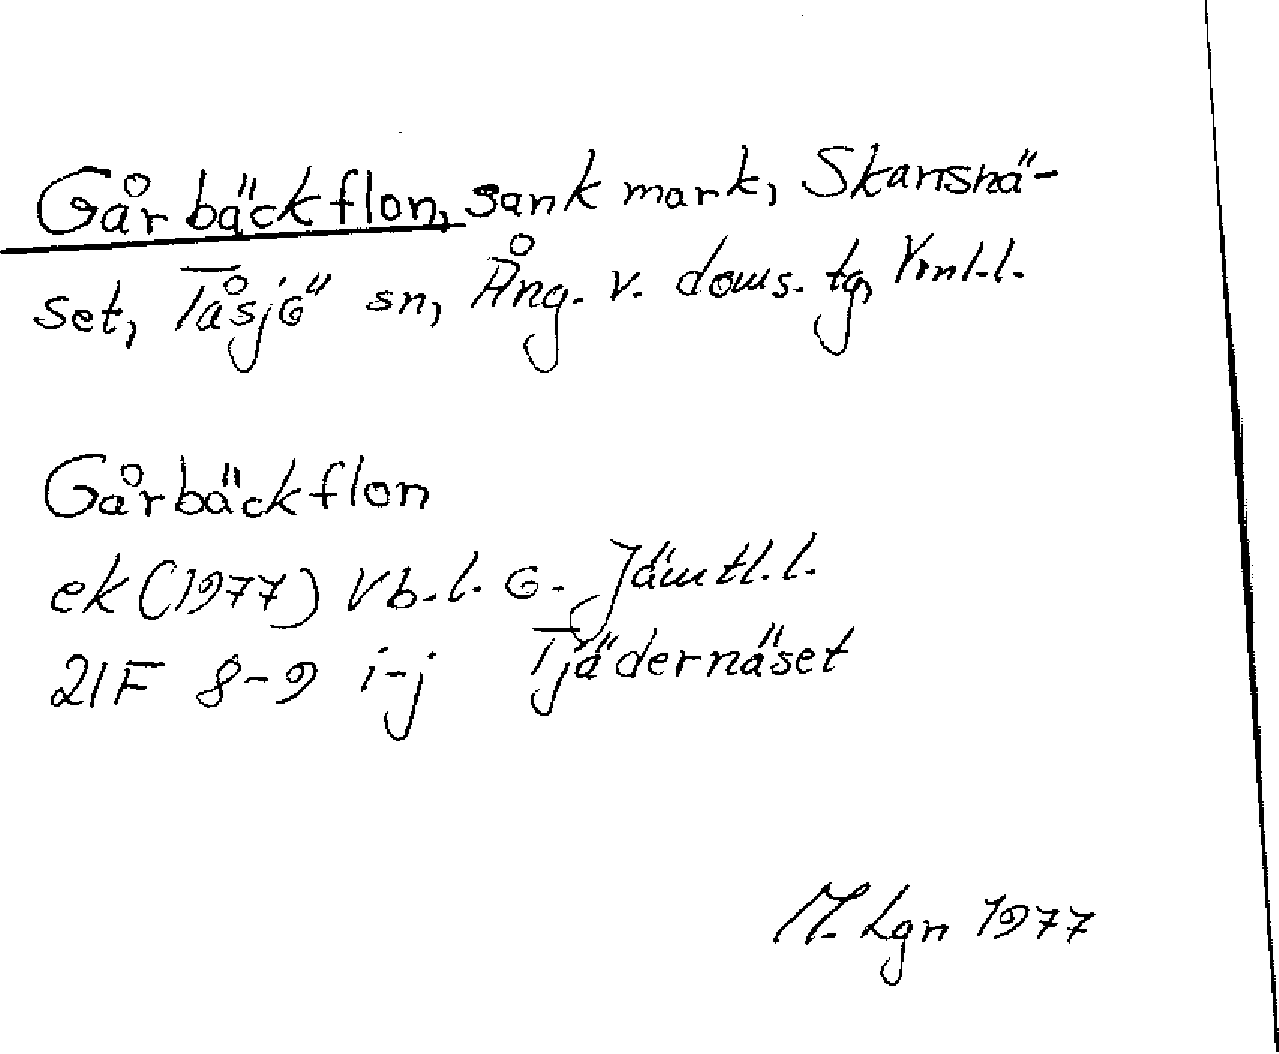 Gårbäckflon, sank mark, Skansnä-
set, Tåsjö sn, Ång. v. doms. tg, Vnl.l.
Gårbäckflon
ek (1977) Vb.l. o. Jämtl.l.
21F 8-9 i-j Tjädernäset
M. Lgn 1977